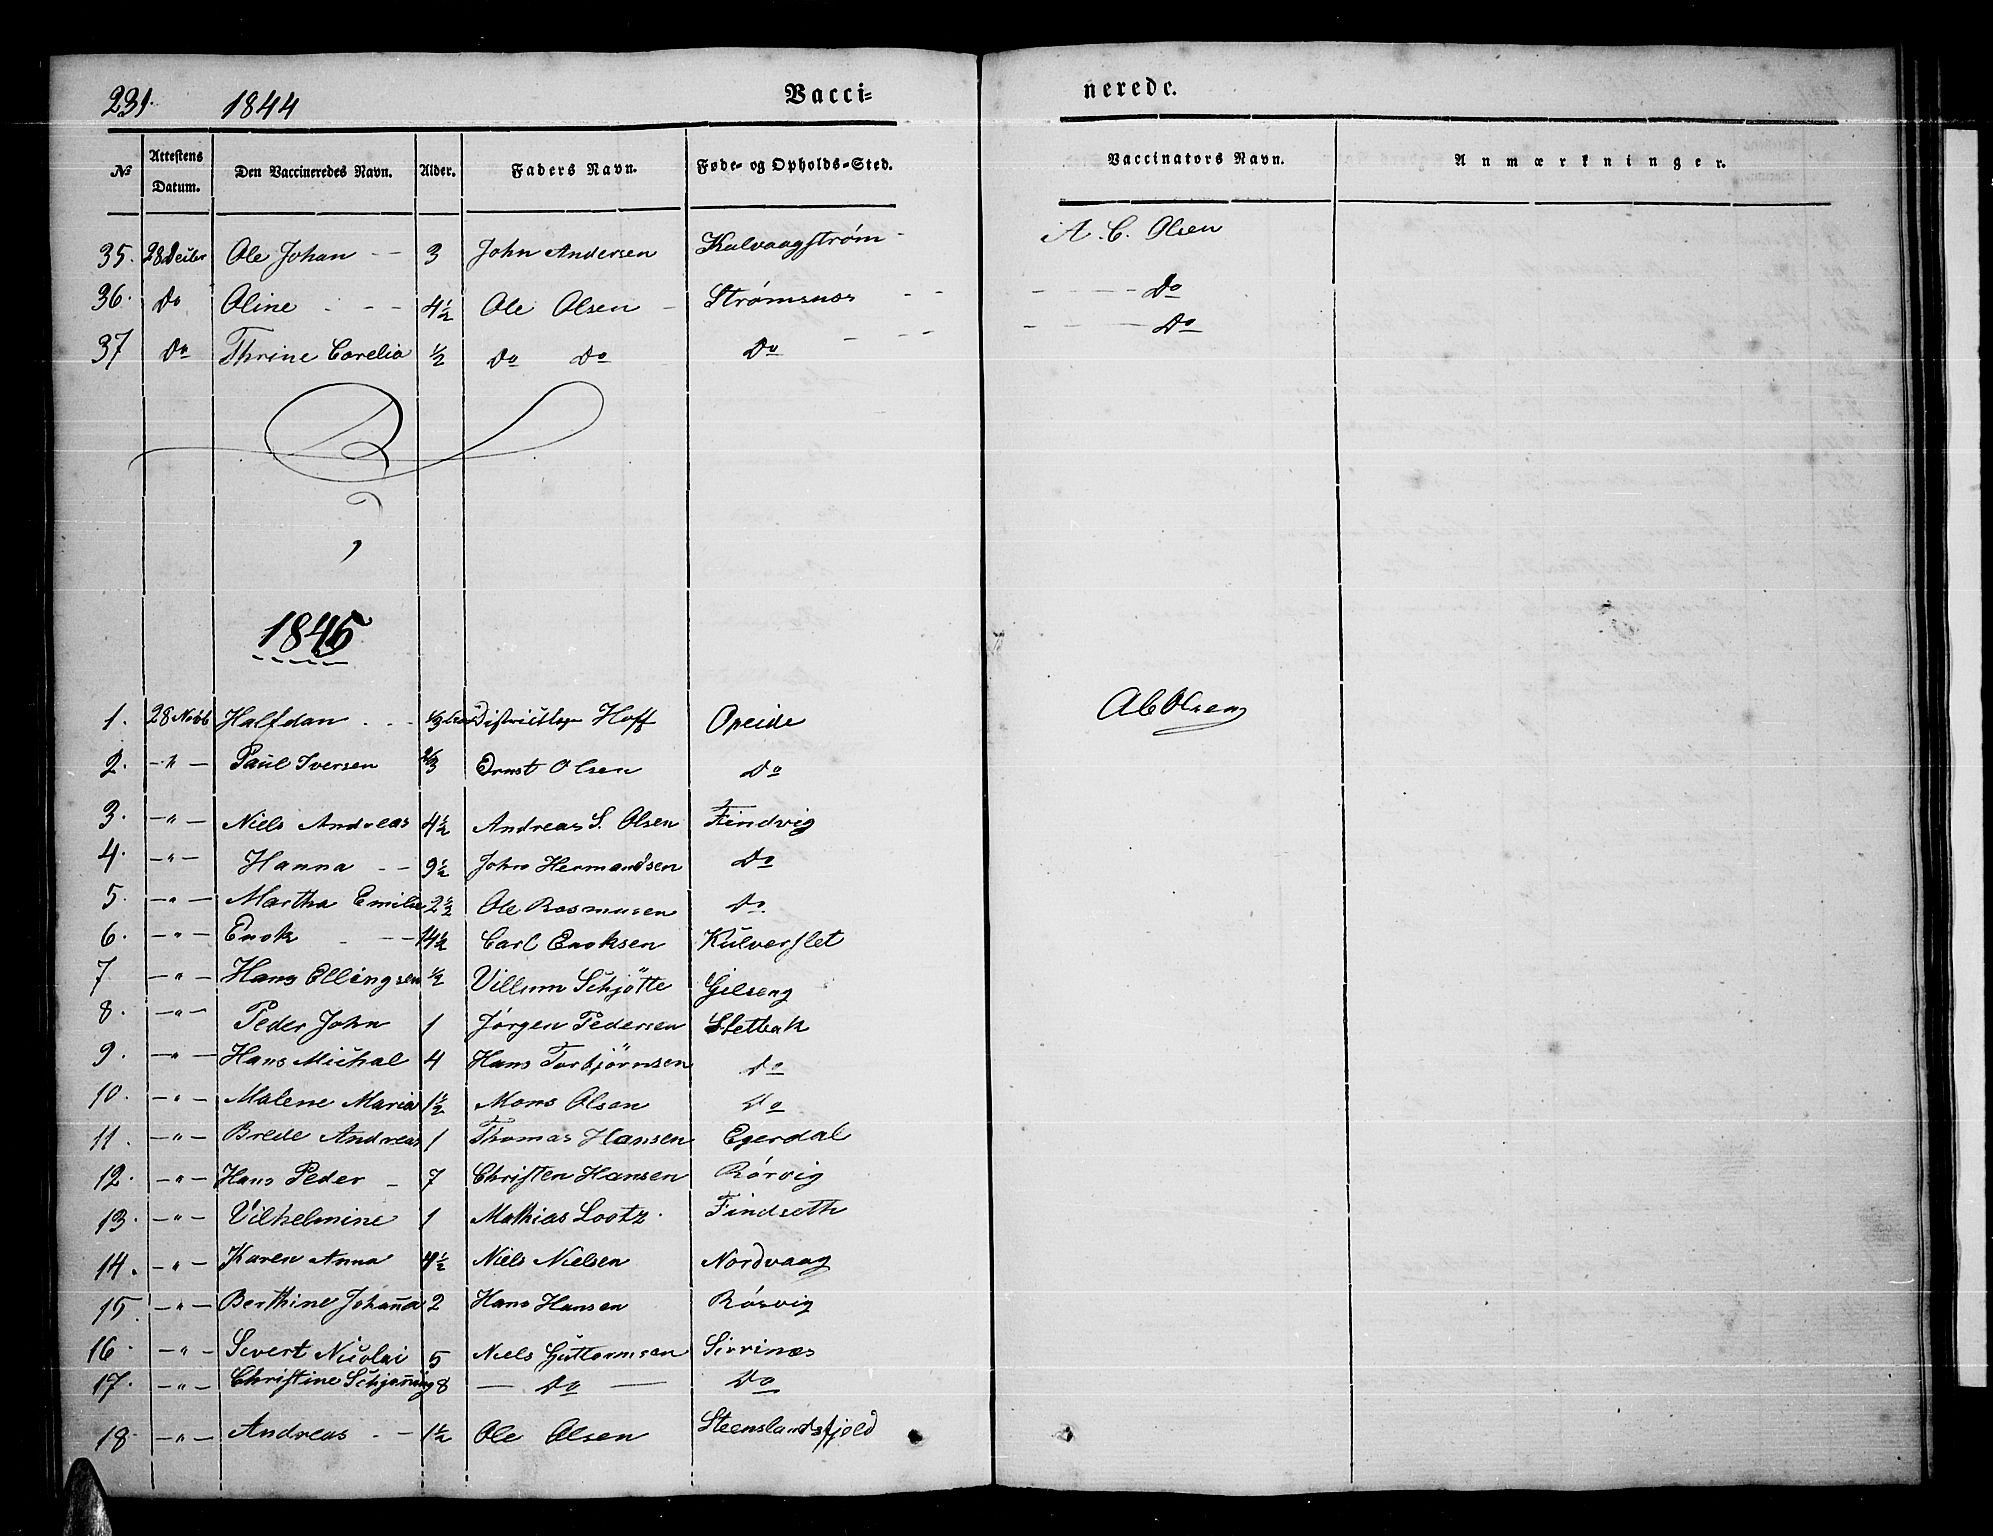 231. 1844 Vacci- nerede.
No Attestens Datum. Den Vaccineredes Navn. Alder. Faders Navn. Føde- og Opholds-Sted. Vaccinators Navn. Anmærkninger.
35. 28 Ole Johan - - 3 John Andersen Kalvaagstrøm - A. C. Olsen
36. Do Oline - - - 4½ Ole Olsen - Strømsnes - - - - - - Do
37 Do Thrine Corelia ½ Do Do Do - - - - - - - Do
1845
1. 28 Novb Halfdan - - - Hoff Opeide A C Olsen
2. - " - Paul Iversen 2/3 Ernst Olsen Do
3. - " - Niels Andreas 4½ Andreas S. Olsen Findvig
4. - " - Hanna - - 9½ John Hermandsen Do
5. - " - Martha Emilie 2½ Ole Rasmusen Do
6. - " - Enok - - - 14½ Carl Enoksen Kulverflet
7 - " - Hans Ellingsen ½ Villum Schjøtte Gilseng
8. - " - Peder John 1 Jørgen Pedersen Stetbak
9. - " - Hans Michal 4 Hans Torbjørnsen Do
10. - " - Malene Maria 1½ Mons Olsen Do
11. - " - Brede Andreas 1 Thomas Hansen Egerdal
12. - " - Hans Peder - 7 Christen Hansen Rørvig
13. - " - Vilhelmine 1 Mathias Lootz. Findseth
14. - " - Karen Anna 4½ Niels Nielsen Nordvaag
15. - " - Berthine Johanna 2 Hans Hansen Røsvig
16. - " - Sivert Nicolai 5 Niels Guttormsen Sirrinæs
17. - " - Christine Schjanning 8 - Do - Do
18. - " - Andreas - - 1½ Ole Olsen Steenslandsfjold